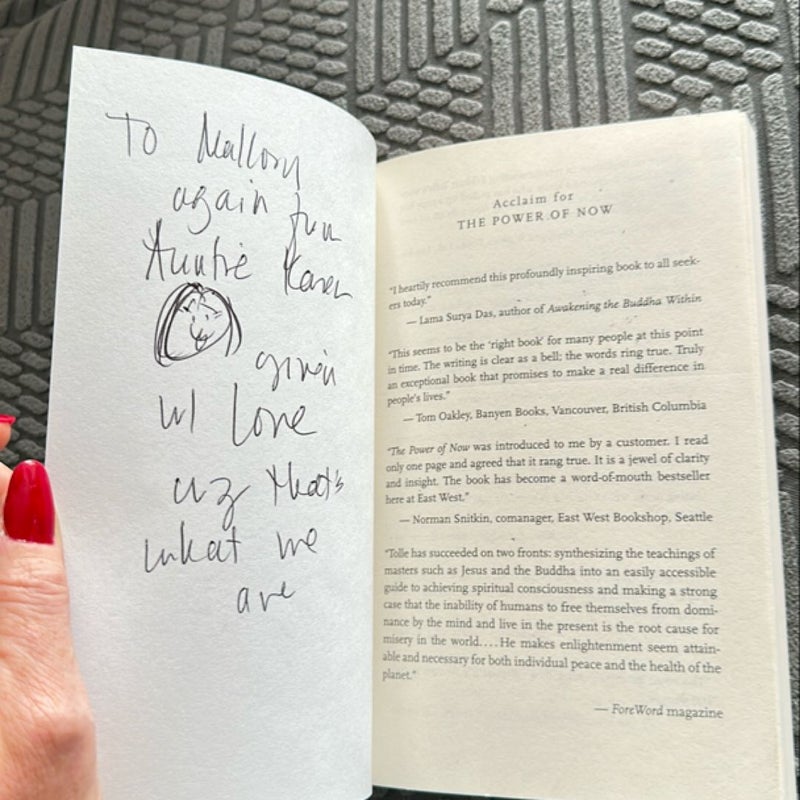 To Mallory
again frm
Auntie Karen
given
w/ Love
cuz that's
what we
are
Acclaim for
THE POWER OF NOW
"I heartily recommend this profoundly inspiring book to all seek-
ers today."
— Lama Surya Das, author of Awakening the Buddha Within
"This seems to be the 'right book' for many people at this point
in time. The writing is clear as a bell; the words ring true. Truly
an exceptional book that promises to make a real difference in
people's lives."
— Tom Oakley, Banyen Books, Vancouver, British Columbia
"The Power of Now was introduced to me by a customer. I read
only one page and agreed that it rang true. It is a jewel of clarity
and insight. The book has become a word-of-mouth bestseller
here at East West."
— Norman Snitkin, comanager, East West Bookshop, Seattle
"Tolle has succeeded on two fronts: synthesizing the teachings of
masters such as Jesus and the Buddha into an easily accessible
guide to achieving spiritual consciousness and making a strong
case that the inability of humans to free themselves from domi-
nance by the mind and live in the present is the root cause for
misery in the world.... He makes enlightenment seem attain-
able and necessary for both individual peace and the health of the
planet."
— ForeWord magazine